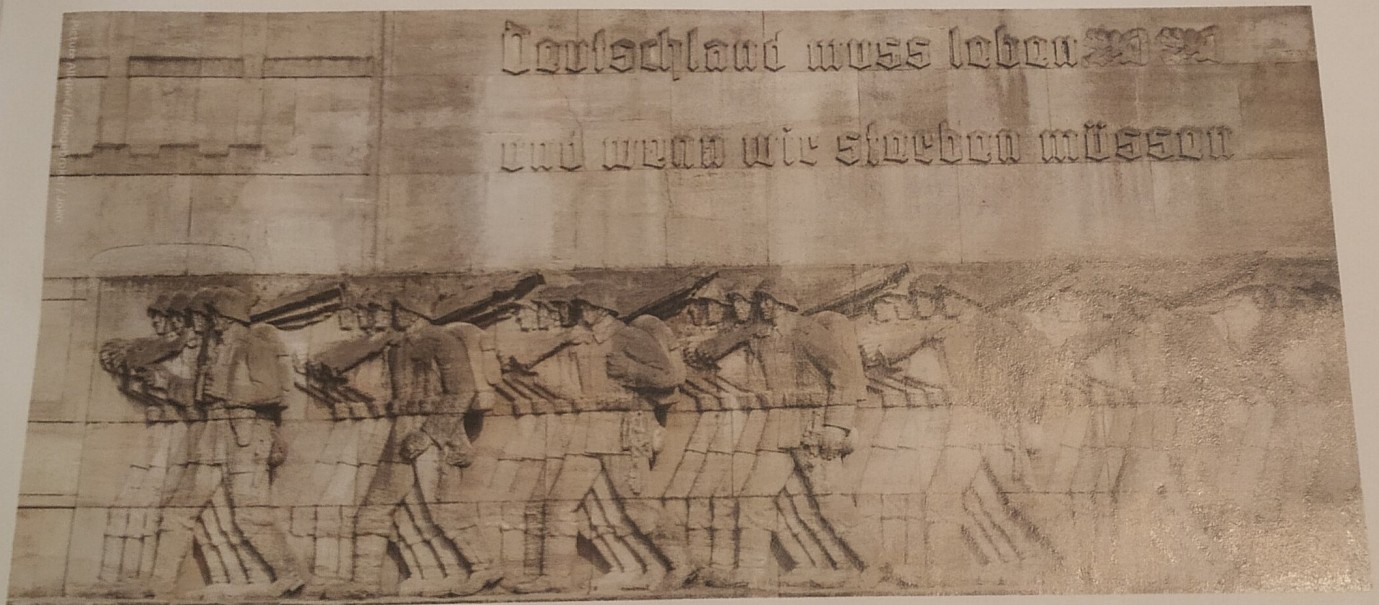 Deutschland muss leben
und wenn wir sterben müssen